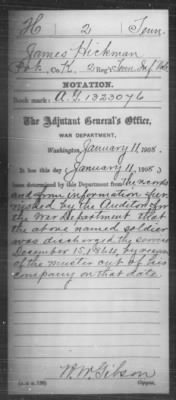 H 2 Tenn.
James Hickman
Pvt., Co. K, 2 Reg't Tenn. Inf. Vols.
NOTATION.
Book mark: A. G. 1323076
The Adjutant General's Office,
WAR DEPARTMENT,
Washington, January 11, 1908.
It has this day (January 11, 1908)
been determined by this Department from the records
and from information fur-
nished by the Auditor for
the War Department that
the above named soldier
was discharged the service
December 15, 1864, by reason
of the muster out of his
company on that date.
W. W. Gibson
Copyist.